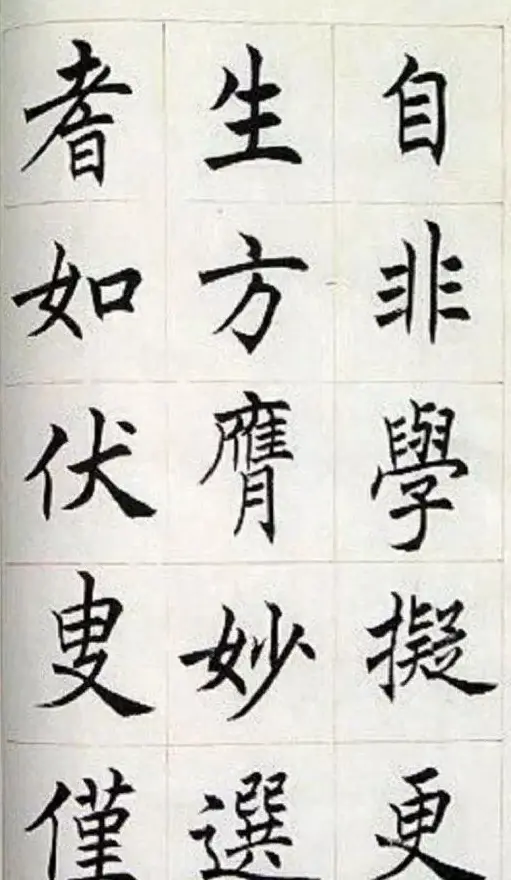 自非學擬更
生方膺妙選
耆如伏叟僅